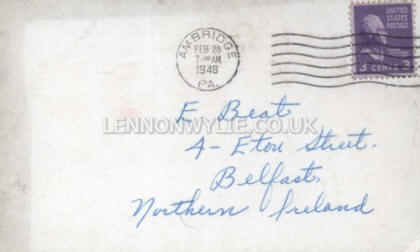 AMBRIDGE
FEB 28
7-30 AM
1948
PA.
UNITED STATES
POSTAGE
3 CENTS 3
E Beat
LENNONWYLIE.CO.UK
4- Eton Street.
Belfast,
Northern Ireland